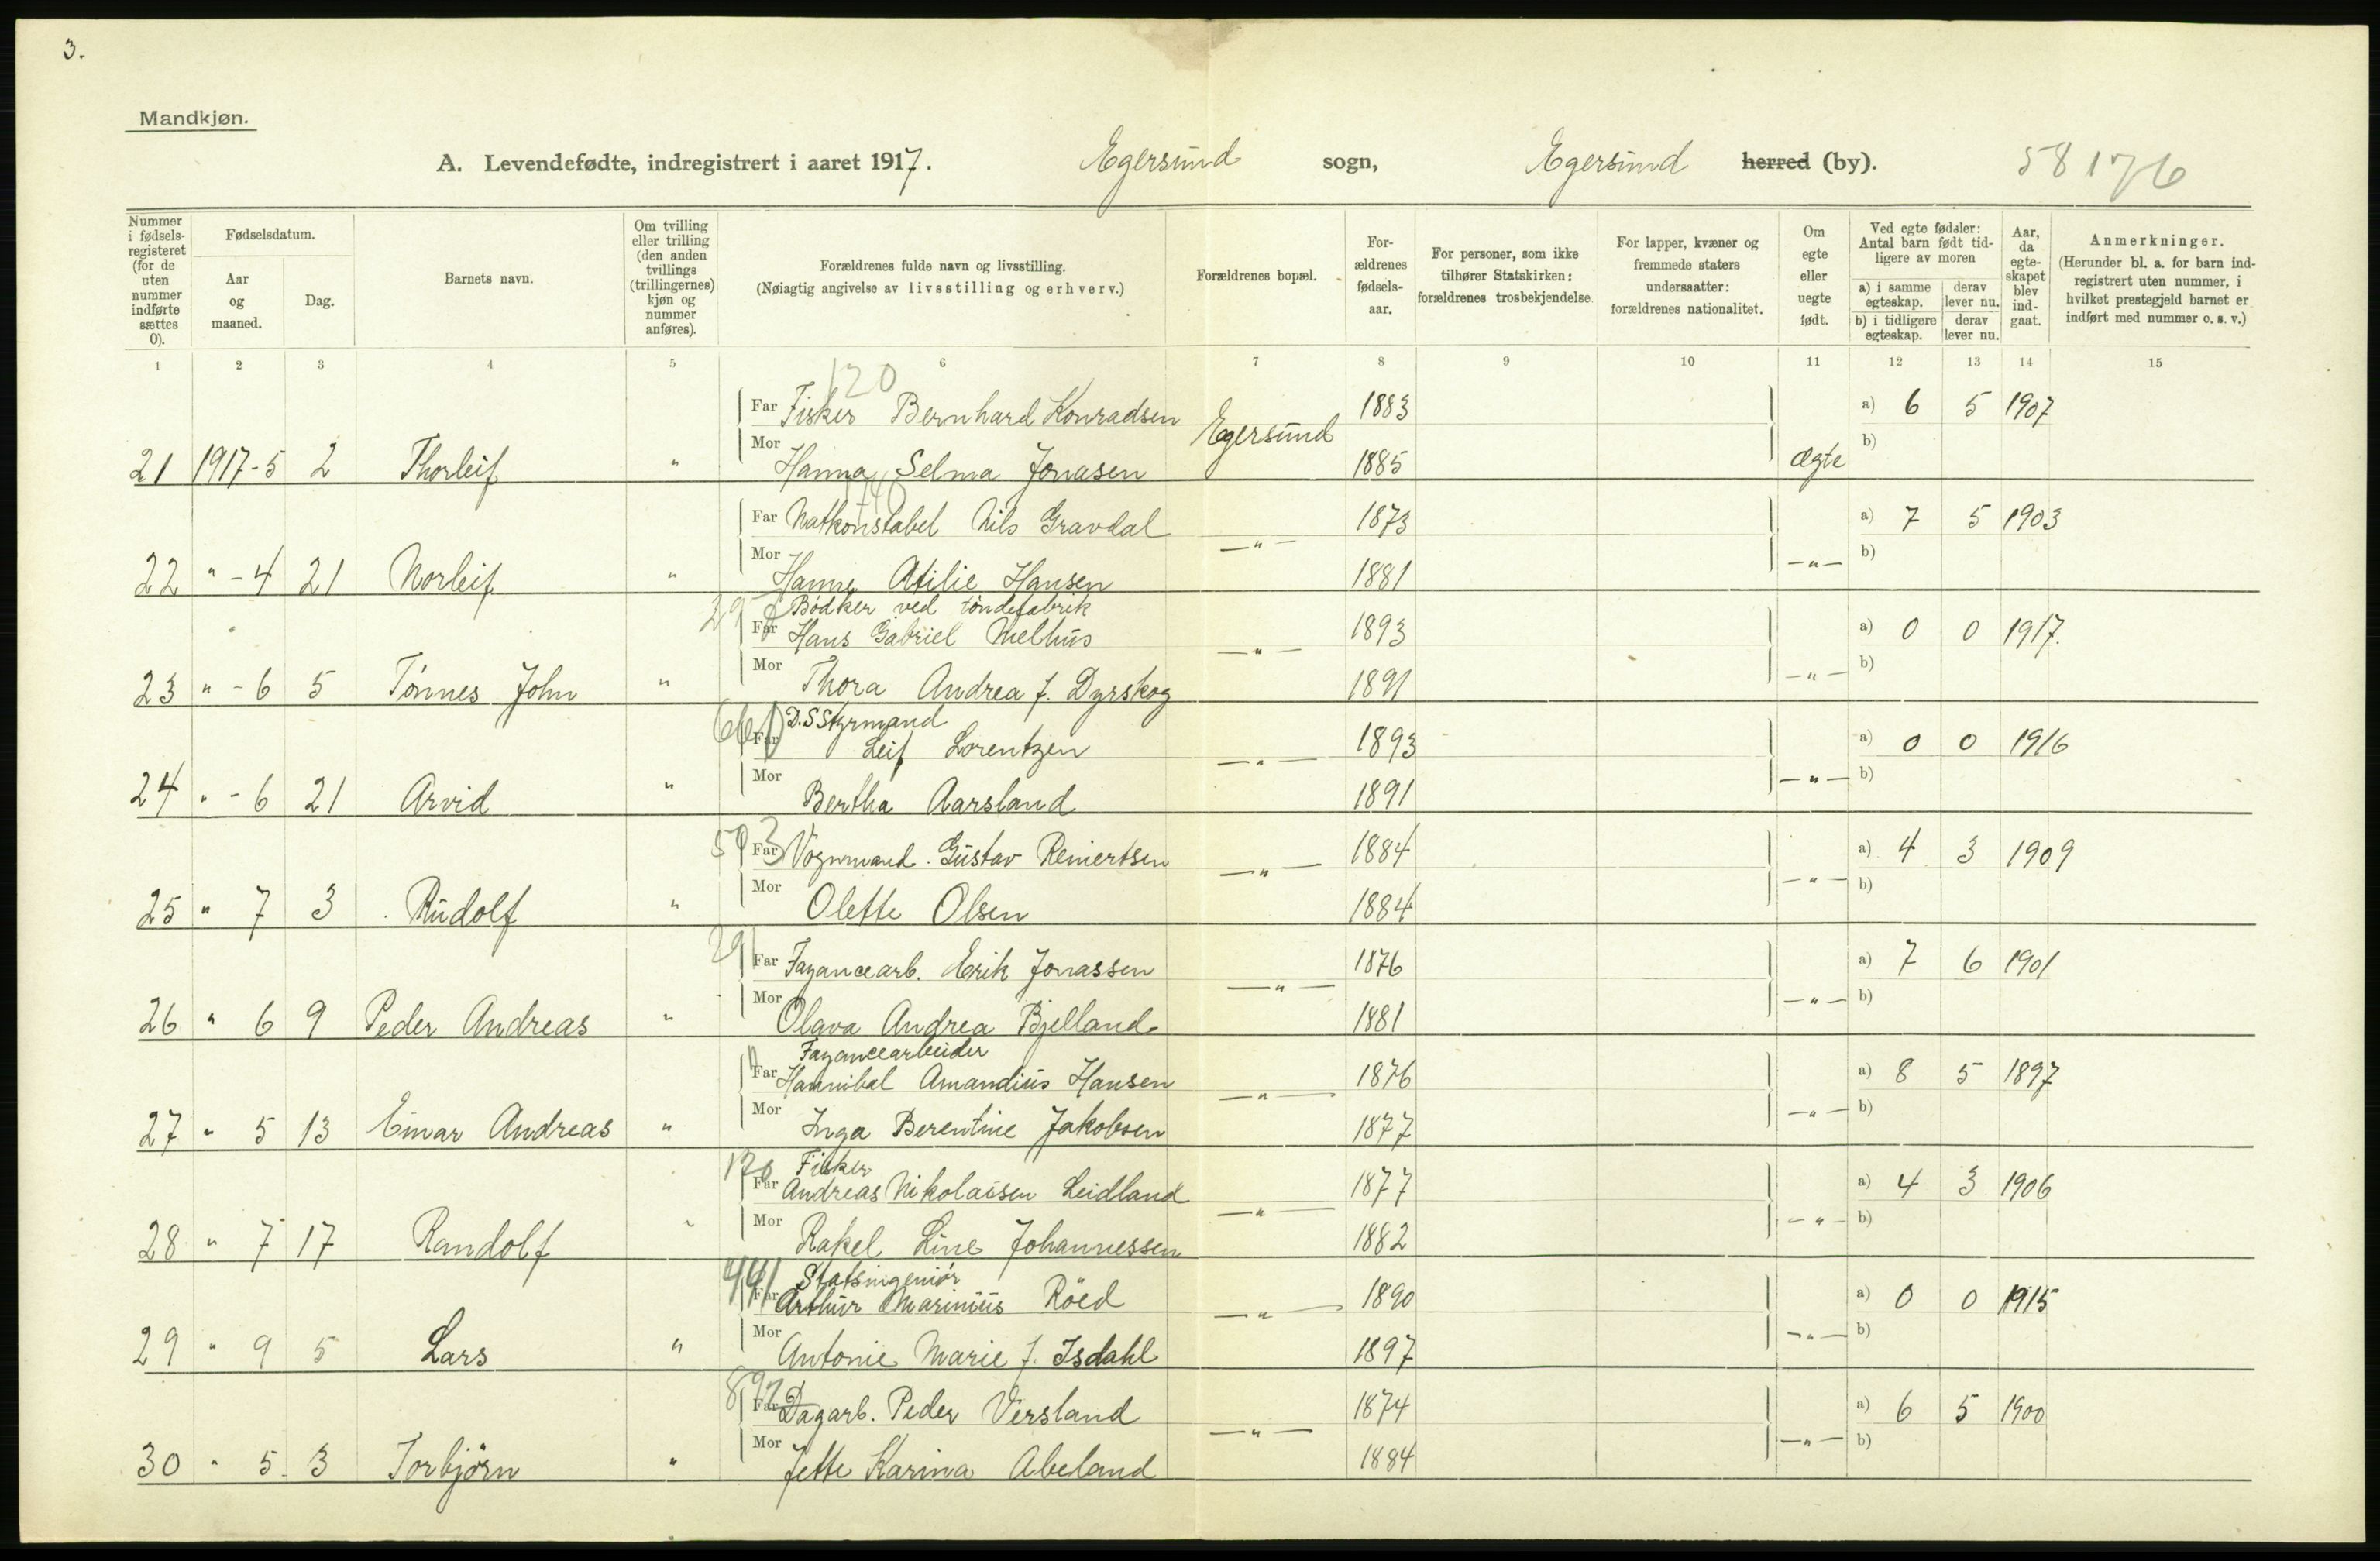 3.
Mandkjøn.
A. Levendefødte, indregistrert i aaret 1917. Egersund sogn, Egersund herred (by). 58176
Nummer i fødselsregisteret (for de uten nummer indførte sættes 0).
Fødselsdatum.
Aar og maaned.
Dag.
Barnets navn.
Om tvilling eller trilling (den anden tvillings (trillingernes) kjøn og nummer anføres).
Forældrenes fulde navn og livsstilling.
(Nøiagtig angivelse av livsstilling og erhverv.)
Forældrenes bopæl.
Forældrenes fødselsaar.
For personer, som ikke tilhører Statskirken: forældrenes trosbekjendelse.
For lapper, kvæner og fremmede staters undersaatter: forældrenes nationalitet.
Om egte eller uegte født.
Ved egte fødsler: Antal barn født tidligere av moren
a) i samme egteskap. derav lever nu.
b) i tidligere egteskap. derav lever nu.
Aar, da egteskapet blev indgaat.
Anmerkninger.
(Herunder bl. a. for barn indregistrert uten nummer, i hvilket prestegjeld barnet er indført med nummer o. s. v.)
1 2 3 4 5 6 7 8 9 10 11 12 13 14 15
120
Far Fisker Bernhard Konradsen Egersund 1883 a) 6 5 1907
21 1917-5 2 Thorleif " Mor Hanna Selma Jonasen 1885 ægte b)
Far Natkonstabel Nils Gravdal —"— 1873 a) 7 5 1903
22 " - 4 21 Norleif " Mor Hanne Otilie Hansen 1881 —"— b)
Bødker ved tøndefabrik
Far Hans Gabriel Melhus —"— 1893 a) 0 0 1917.
23 " - 6 5 Tønnes John " Mor Thora Andrea f. Dyrskog 1891 —"— b)
D.S Styrmand
Far Leif Lorentzen —"— 1893 a) 0 0 1916
24 " - 6 21 Arvid " Mor Bertha Aarsland 1891 —"— b)
503 Far Vognmand. Gustav Reinertsen —"— 1884 a) 4 3 1909
25 " 7 3 Rudolf " Mor Olette Olsen 1884 —"— b)
291 Far Fayancearb. Erik Jonassen —"— 1876 a) 7 6 1901
26 " 6 9 Peder Andreas " Mor Olava Andrea Bjelland 1881 —"— b)
Fayancearbeider
Far Hannibal Amandius Hansen —"— 1876 a) 8 5 1897
27 " 5 13 Einar Andreas " Mor Inga Berentine Jakobsen 1877 —"— b)
120 Fisker
Far Andreas Nikolaisen Leidland —"— 1877 a) 4 3 1906
28 " 7 17 Randolf " Mor Rakel Line Johannessen 1882 —"— b)
441 Statsingeniør
Far Arthur Marinius Røed —"— 1890 a) 0 0 1915
29 " 9 5 Lars " Mor Antonie Marie f. Isdahl 1897 —"— b)
Far Dagarb. Peder Versland —"— 1874 a) 6 5 1900
30 " 5 3 Torbjørn " Mor Jette Karina Abeland 1884 —"— b)